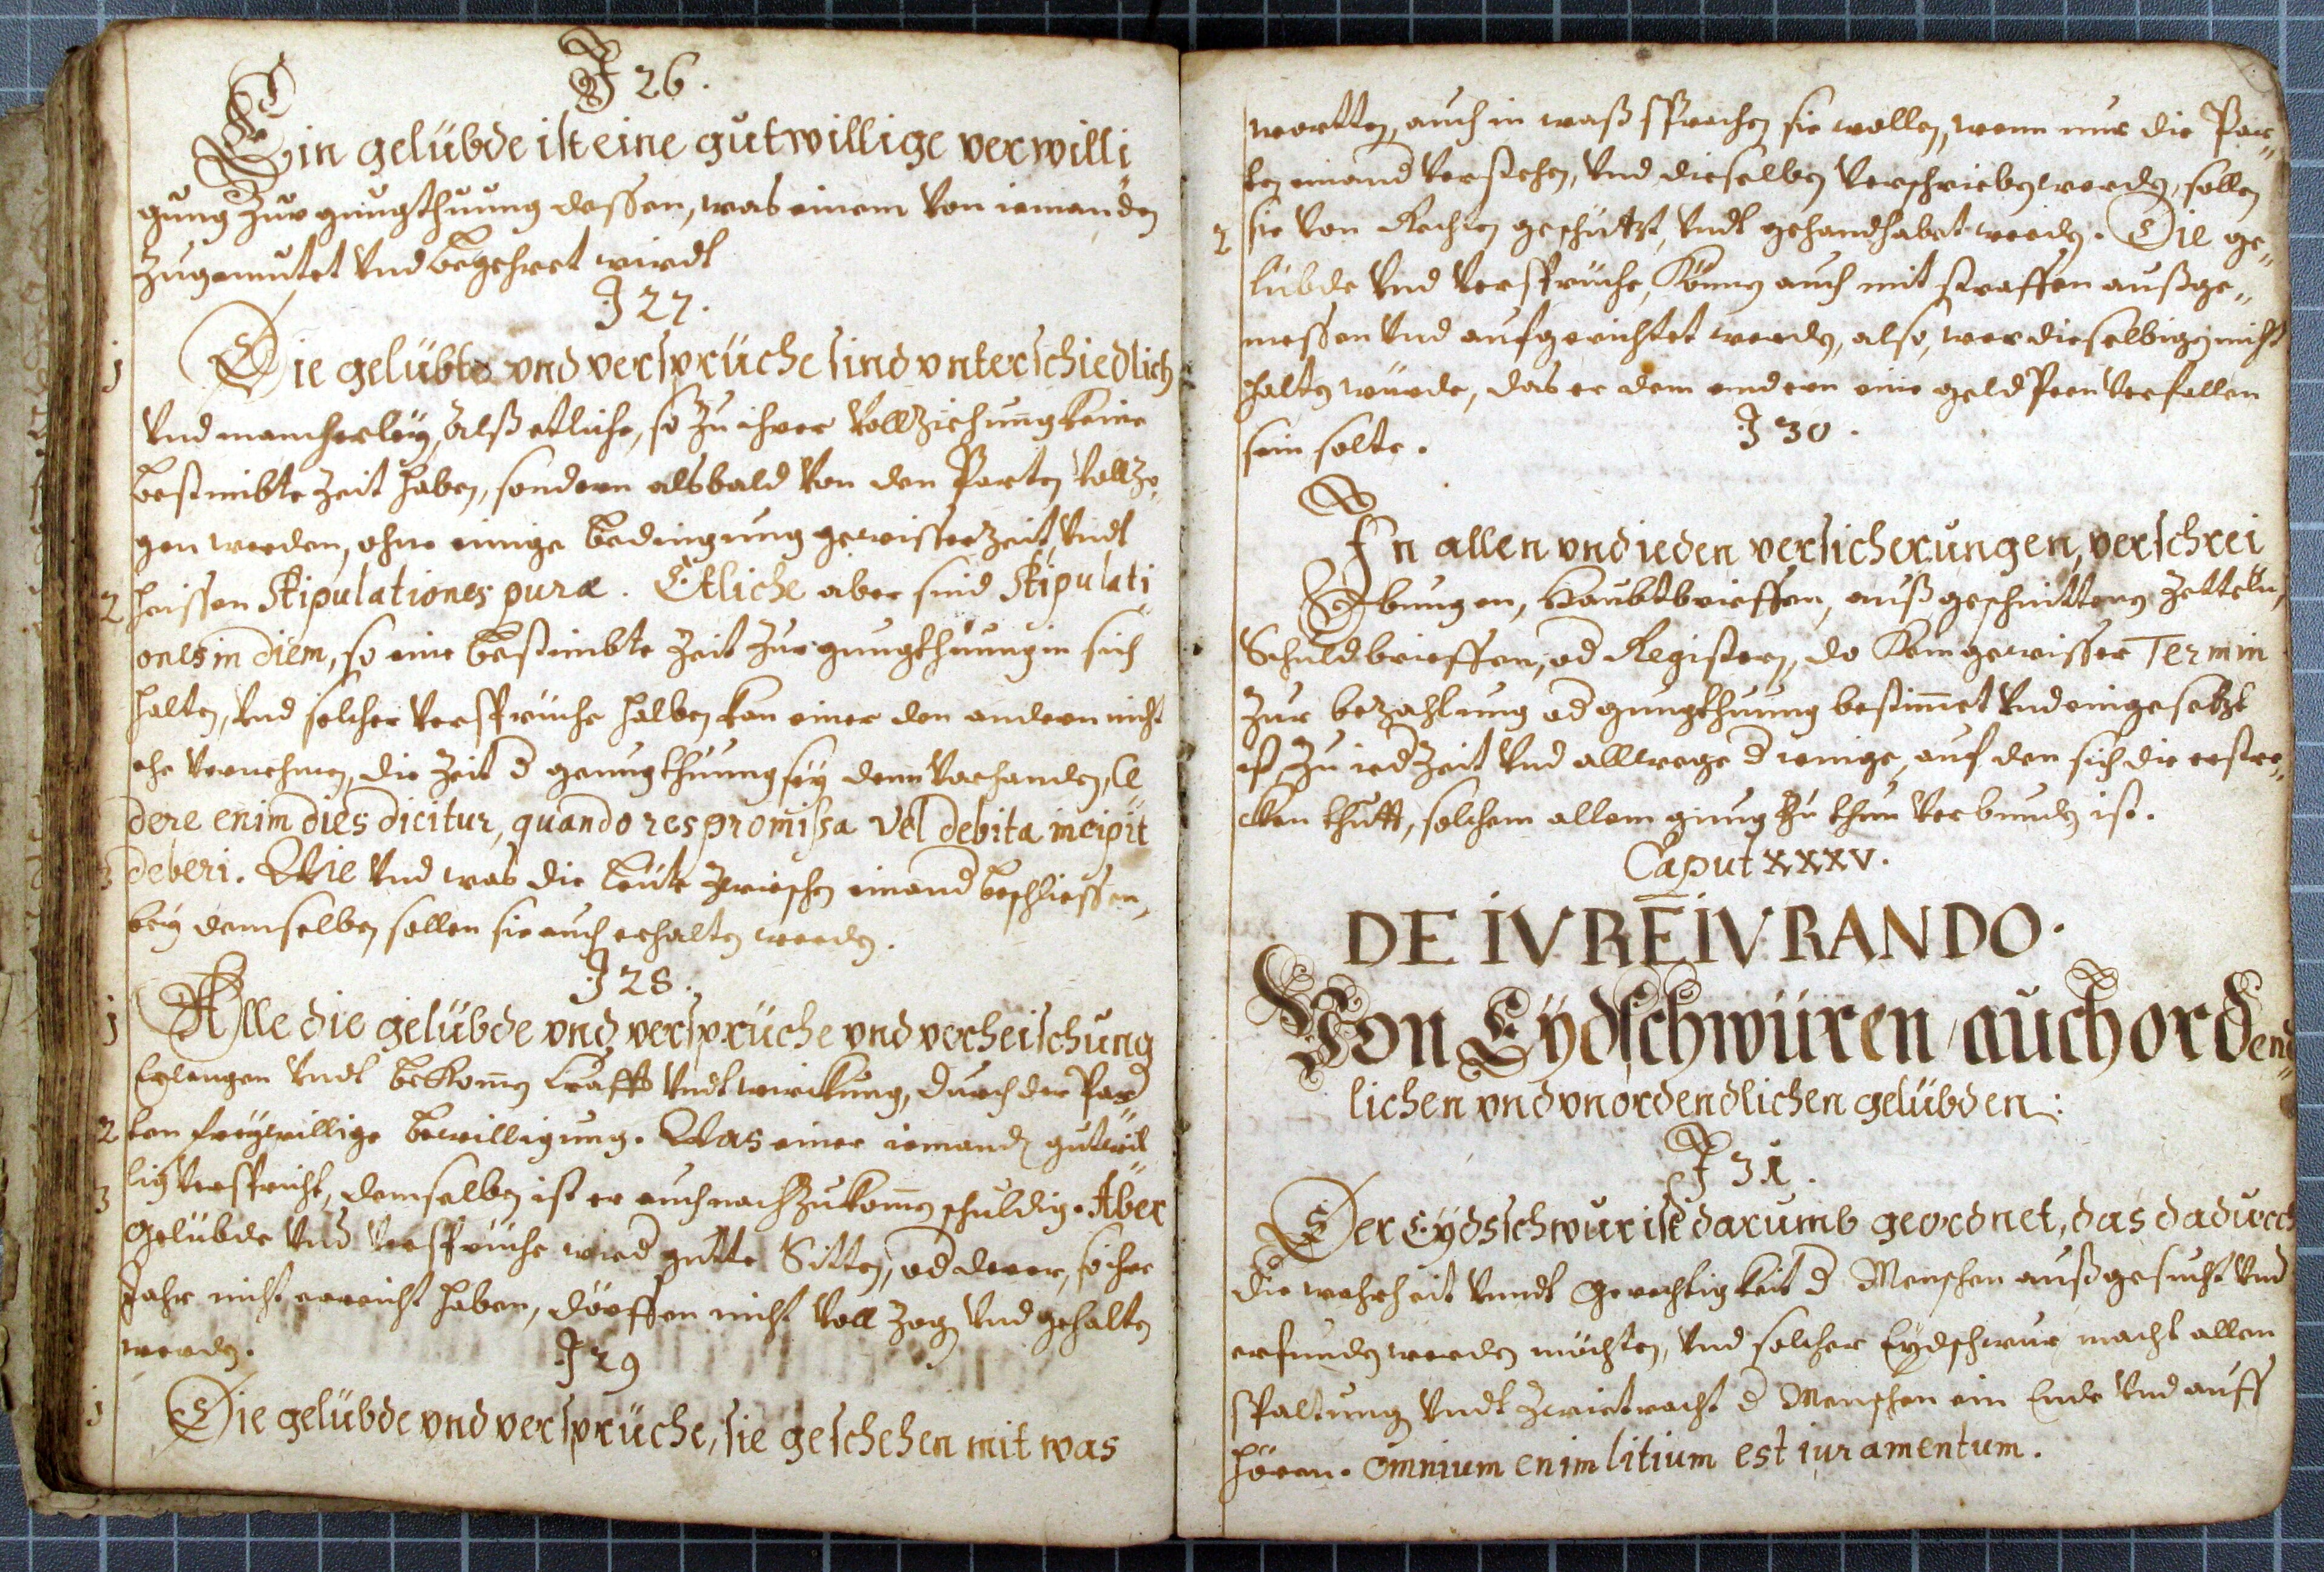 J 26.
Ein gelübde ist eine gutwillige verwilli
gung Zur gnugthuung dessen, was einem Von iemanden
Zugemutet Vnd begehret wirdt
J 27.
1 Die gelübte vnd versprüche sind vnterschiedlich
Vnd mancherley, alß etliche, so zu ihrer Vollziehung keine
bestimbte Zeit haben, sondern alsbald Von den Parten Vollzo„
gen werden, ohne einige bedingung gewisser Zeit, Vndt
2 heissen Stipulationes puræ. Etliche aber sind Stipulati„
ones in diem, so eine bestimbte Zeit Zur gnugthuung in sich
halten, Vnd solcher Versprüche halben kan einer den andern nicht
ehe Vernehmen, die Zeit d genugthuung sey denn Vorhanden, Ce„
dere enim dies dicitur, quando res promissa vel debita incipit
3 deberi. Wie Vnd was die Leute zwischen einand beschliessen,
bey demselben sollen sie auch erhalten werden.
J 28.
1 Alle die gelübde vnd versprüche vnd verheischung
Erlangen Vndt bekom̅en Krafft Vndt wirckung, durch der Par„
2 ten freywillige bewilligung. Was einer iemand gutwil„
3 lig Verspricht, demselben ist er auch nachzukom̅en schuldig. Aber
gelübde Vnd Versprüche wied gutte Sitten, od derer, so ihre
Jahr nicht erreicht haben, dörffen nicht Voll zogen Vnd gehalten
werden.
J 29
1 Die gelübde vnd versprüche, sie geschehen mit was
wortten, auch in waß sprachen sie wollen, wenn nur die Par„
ten einand Verstehen, Vnd dieselben Verschrieben werden, sollen
2 sie Von Rechten geschützt, Vndt gehandhabet werden. Die ge„
lübde Vnd Versprüche, können auch mit straffen außge„
messen Vnd aufgerichtet werden, also, wer dieselbigen nicht
halten würde, das er dem andern eine geld Peen Verfallen
sein solte.
J 30.
In allen vnd ieden versicherungen, verschrei
bungen, Haubtbrieffen, auß geschnittene Zetteln,
Schuldbrieffen, od Registern, do kein gewisser Termin
Zur bezahlung od gnugthuung bestim̅et Vnd eingesetzt
ist, Zu ied Zeit Vnd allwege d ienige, auf den sich die erstre„
cken thutt, solchem allem gnug zu thun Verbunden ist.
Caput xxxv.
DE IVREIVRANDO.
Von Eydschwüren / auch ordend„
lichen vnd vnordendlichen gelübden:
J 31.
Der Eydsschwur ist darumb geordnet, das dadurch
die wahrheit Vnndt Gerechtigkeit d Menschen außgesucht Vnd
erfunden werden möchten, Vnd solcher Eydschwur macht allen
spaltung Vndt Zwietracht d Menschen ein Ende Vnd auff
hören. Omnium enim litium est iuramentum.